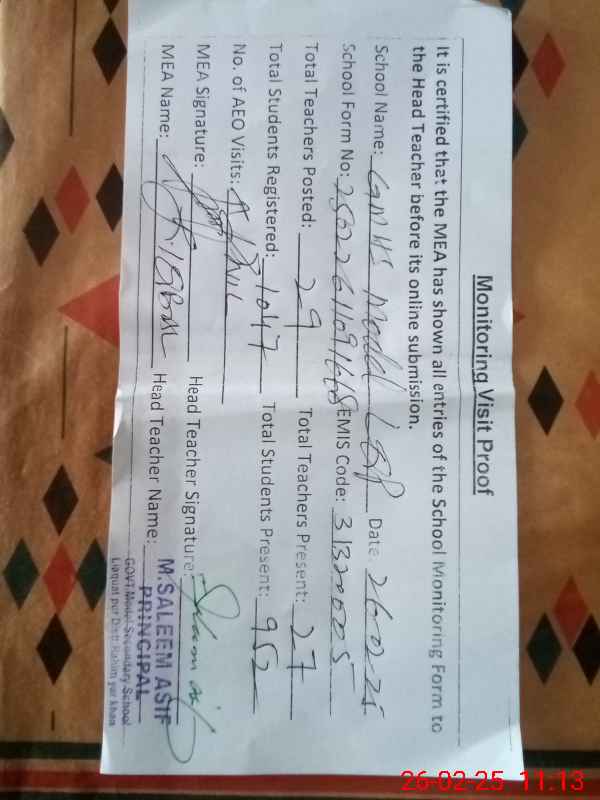 Monitoring Visit Proof
It is certified that the MEA has shown all entries of the School Monitoring Form to
the Head Teacher before its online submission.
School Name: GMHS Model LQP Date: 26.02.25
School Form No: EMIS Code: 31320005
Total Teachers Posted: 29 Total Teachers Present: 27
Total Students Registered: 1047 Total Students Present: 952
No. of AEO Visits:
MEA Signature: Head Teacher Signature:
MEA Name: Head Teacher Name:
M.SALEEM ASIF
PRINCIPAL
GOVT.Model Secondary School
Liaquat pur Distt Rahim yar khan
26-02-25 11:13